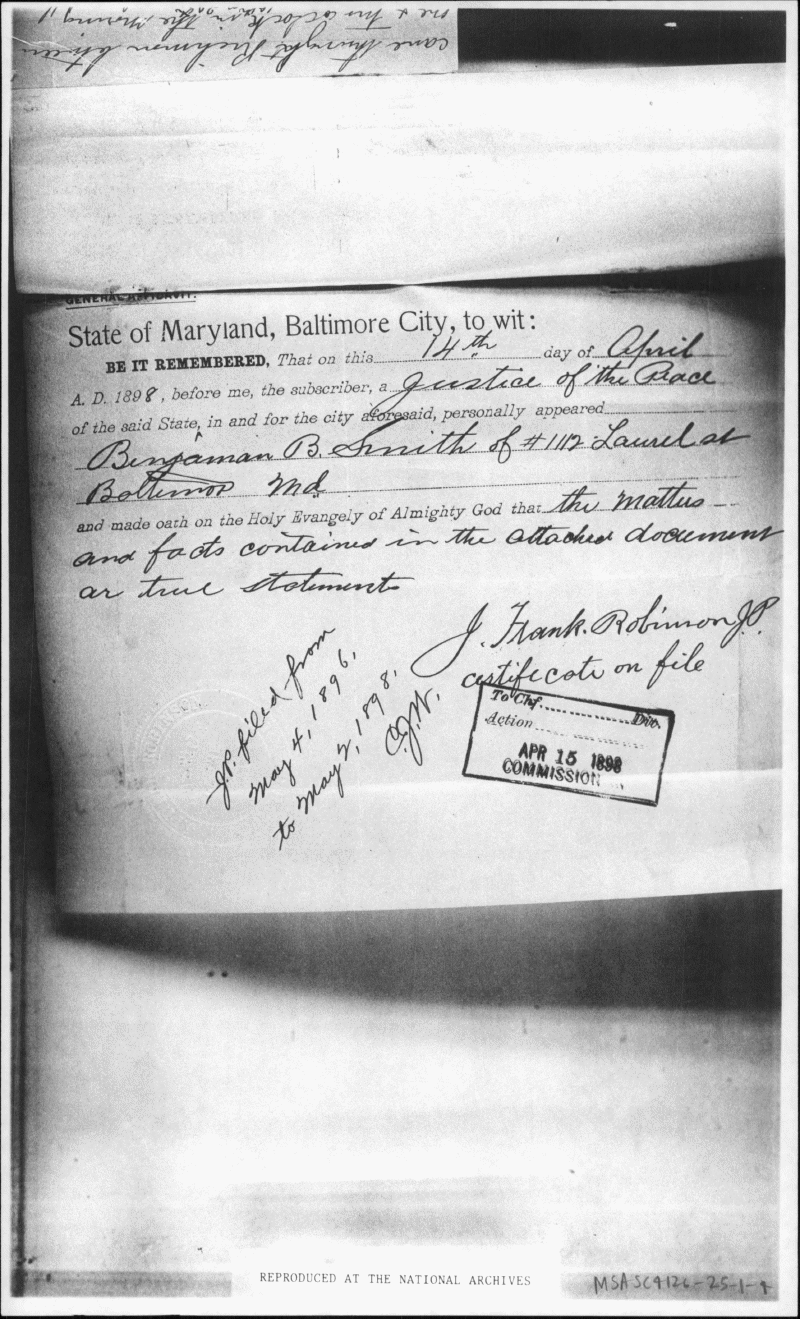 came thought Richmon btween
one & two oclock in the Morning"
GENERAL AFFIDAVIT.
State of Maryland, Baltimore City, to wit:
BE IT REMEMBERED, That on this 14th day of April
A. D. 1898, before me, the subscriber, a Justice of the Peace
of the said State, in and for the city aforesaid, personally appeared
Benjaman B. Smith of #1112 Laurel st
Baltimor Md.
and made oath on the Holy Evangely of Almighty God that the matters
and facts contained in the attached document
ar true statements
J. Frank. Robinson J.P.
certificate on file
J.P. filed from
May 4, 1896,
to May 2, 1898.
To Chf. Div.
Action
APR 15 1898
COMMISSION
REPRODUCED AT THE NATIONAL ARCHIVES
MSA SC 4126-25-1-9